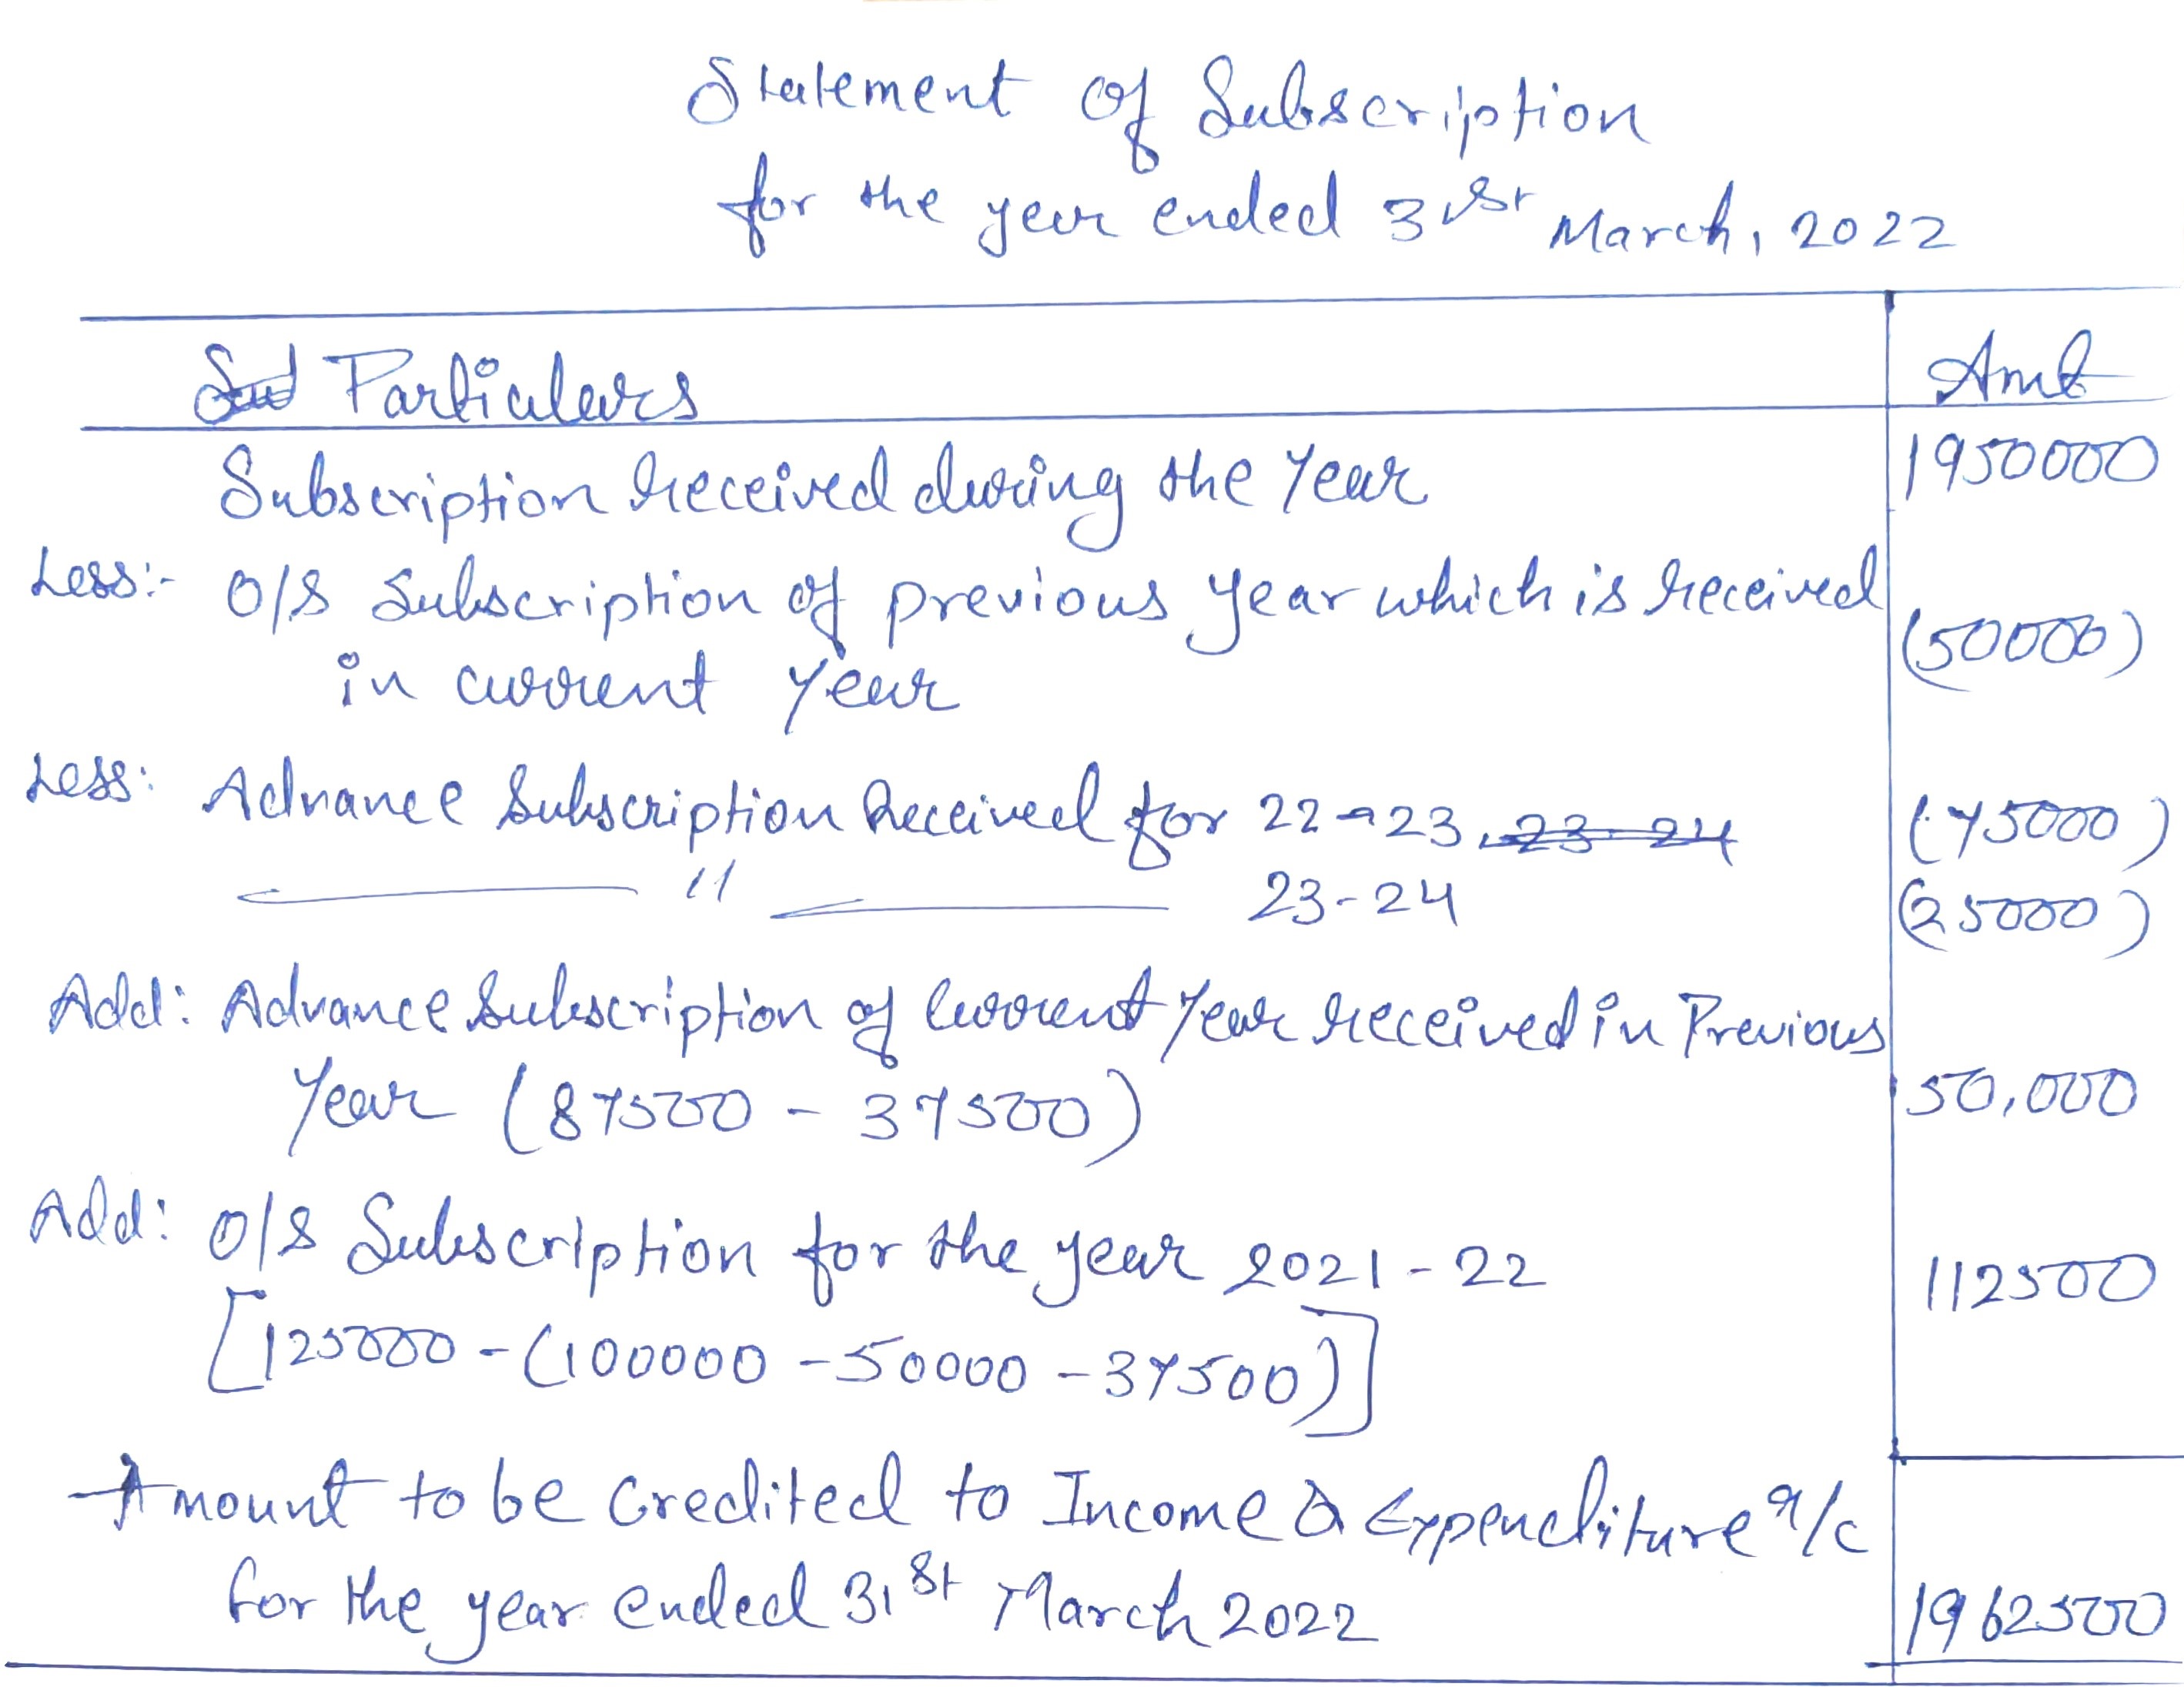 Statement of Subscription
for the year ended 31st March, 2022
Particulars Amt
Subscription received during the Year 1950000
Less:- O/S Subscription of previous year which is received
in current year (50000)
Less: Advance Subscription Received for 22-23 23-24 (75000)
" 23-24 (25000)
Add: Advance Subscription of Current Year received in Previous
Year (87500 - 37500) 50,000
Add: O/S Subscription for the year 2021-22 112500
[125000-(100000-50000-37500)]
Amount to be Credited to Income & Expenditure a/c
for the year ended 31st March 2022 1962500